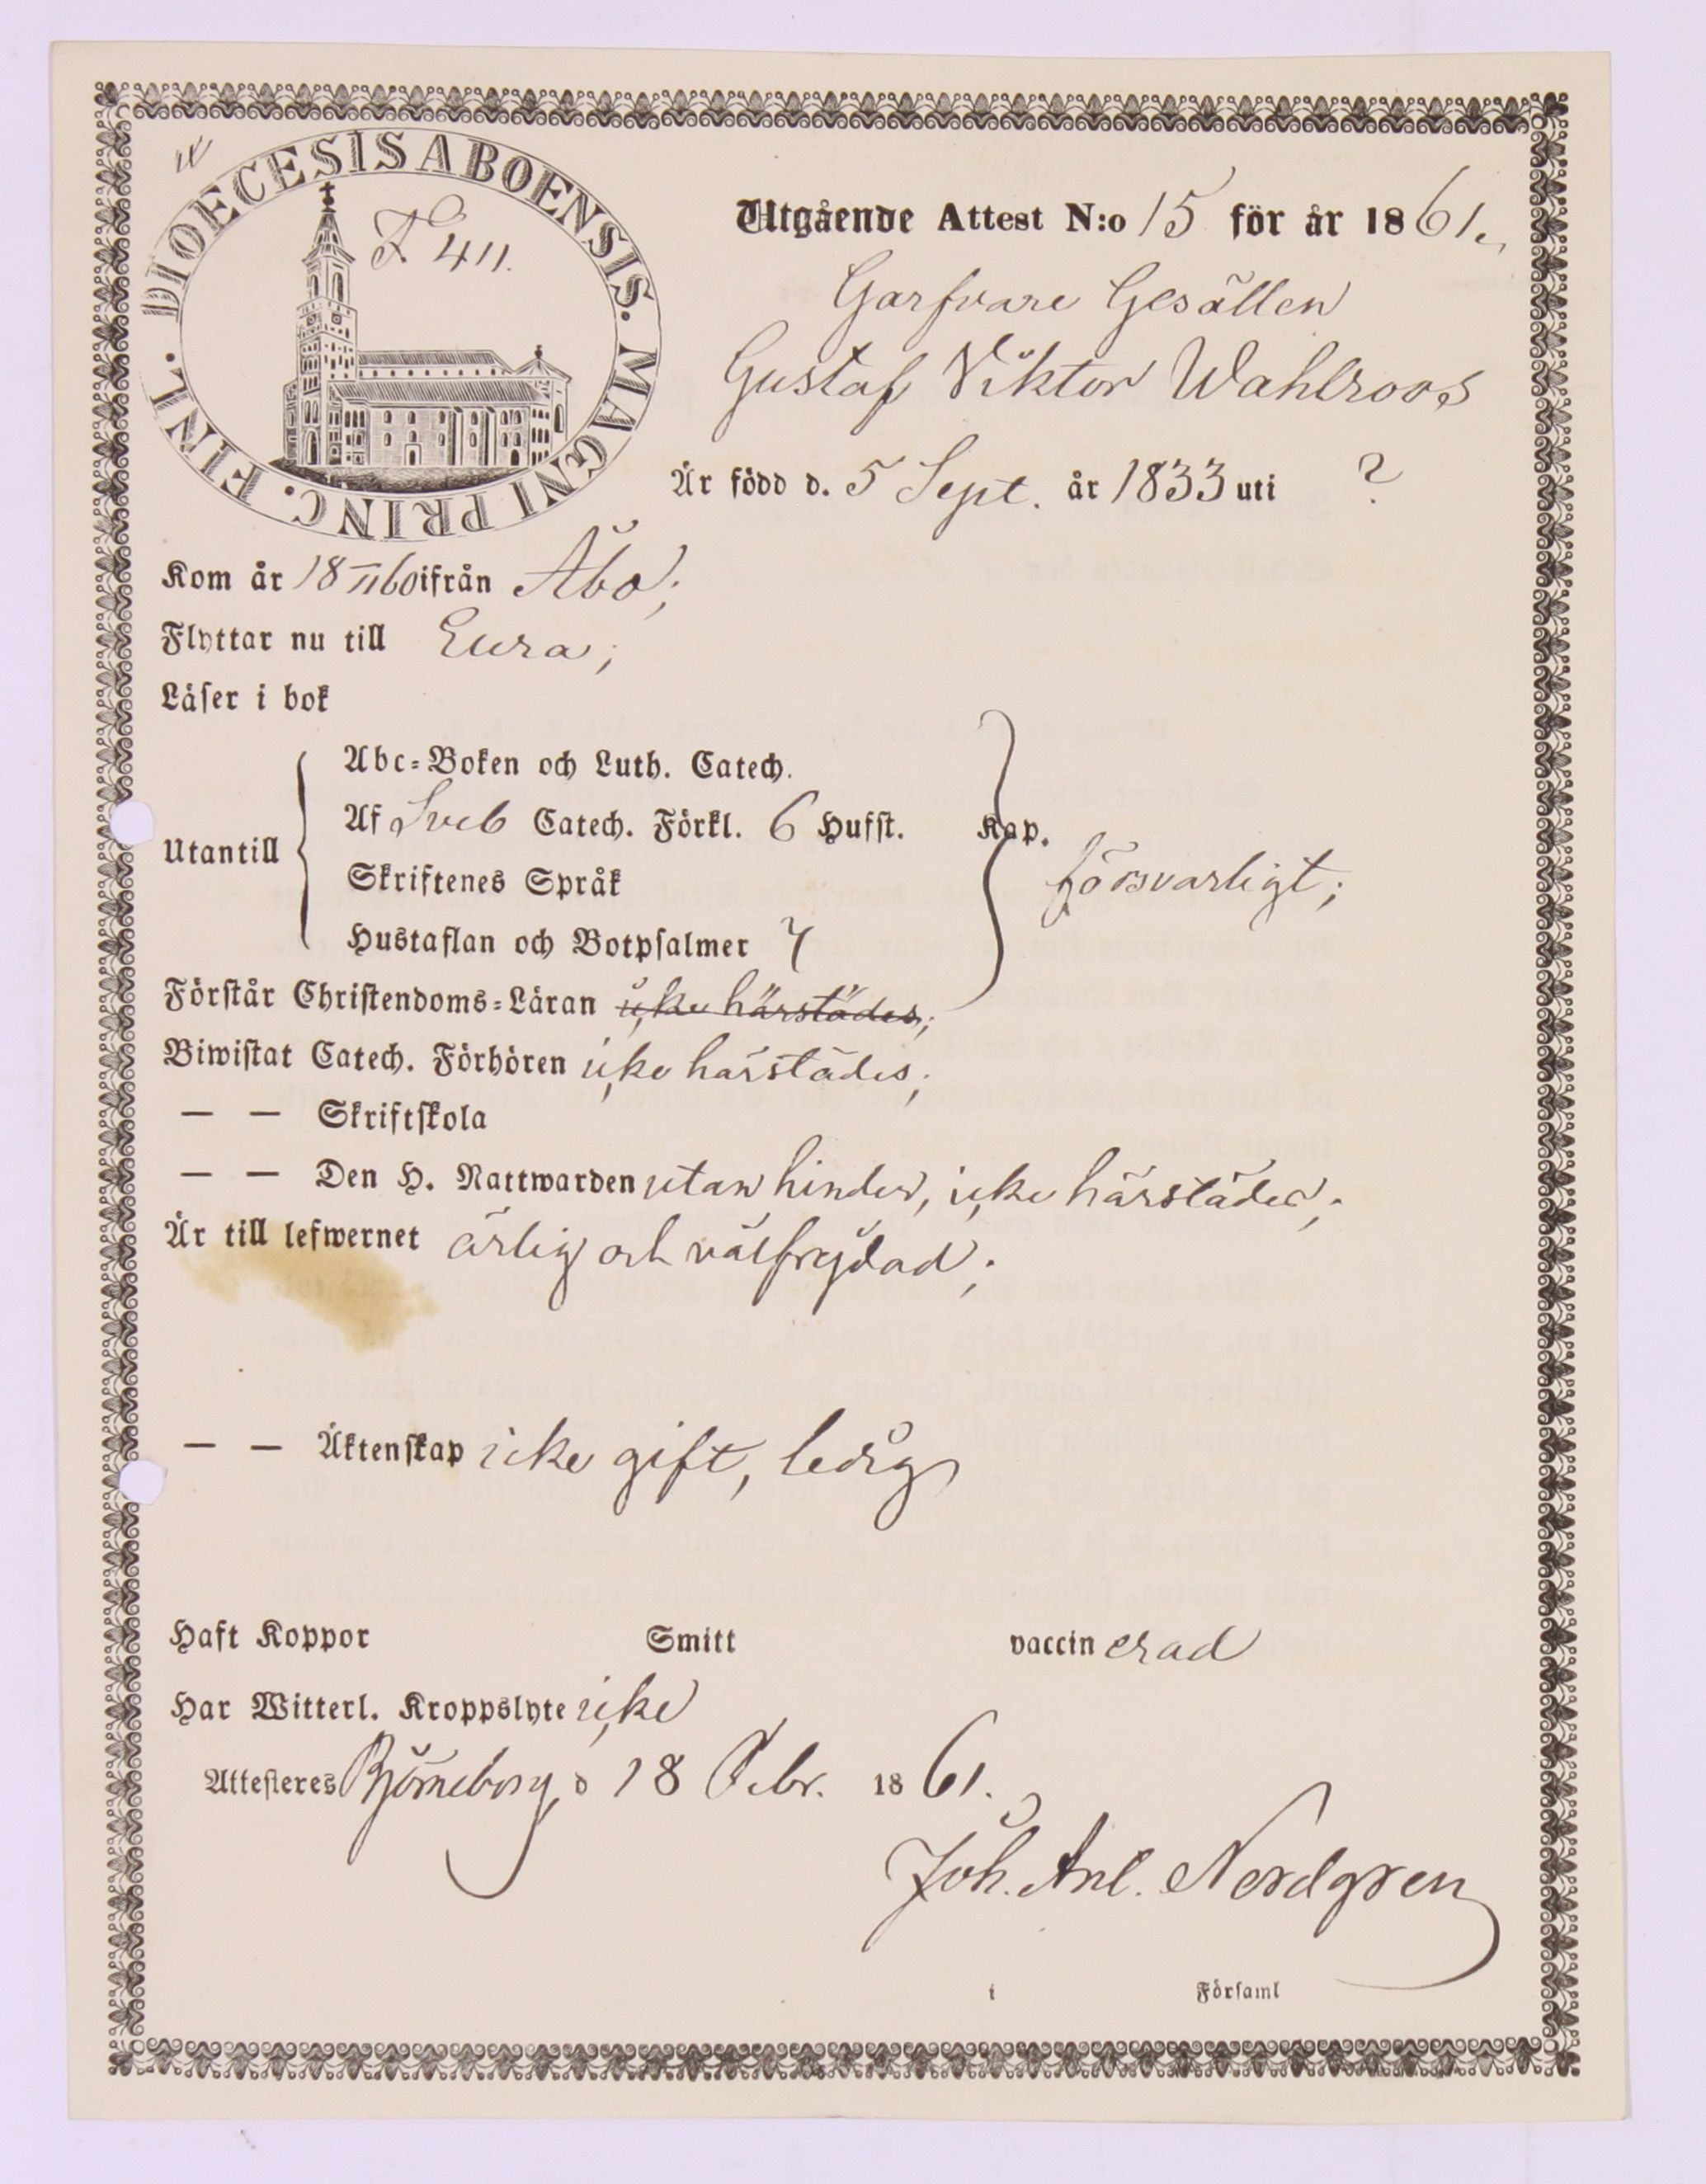 DIOECESIS ABOENSIS. MAGNI PRINC. FINL.
F 411.
Utgående Attest N:o 15 för år 1861
Garfvare Gesällen
Gustaf Viktor Wahlroos
Är född d. 5 Sept. år 1833 uti ?
Kom år 18 60 ifrån Åbo;
Flyttar nu till Eura;
Läser i bok
Abc-Boken och Luth. Catech.
Af Sveb Catech. Förkl. 6 Hufst. Kap.
Utantill
försvarligt;
Skriftenes Språk
Hustaflan och Botpsalmer 7
Förstår Christendoms-Läran icke härstädes;
Biwistat Catech. Förhören icke härstädes;
— — Skriftskola
— — Den H. Nattwarden utan hinder, icke härstädes;
Är till lefwernet ärlig och välfrejdad;
— — Äktenskap icke gift, ledig
Haft Koppor Smitt vaccinerad
Har Witterl. Kroppslyte icke
Attesteres Björneborg d 18 Febr. 1861.
Joh. Nordgren
i Församl